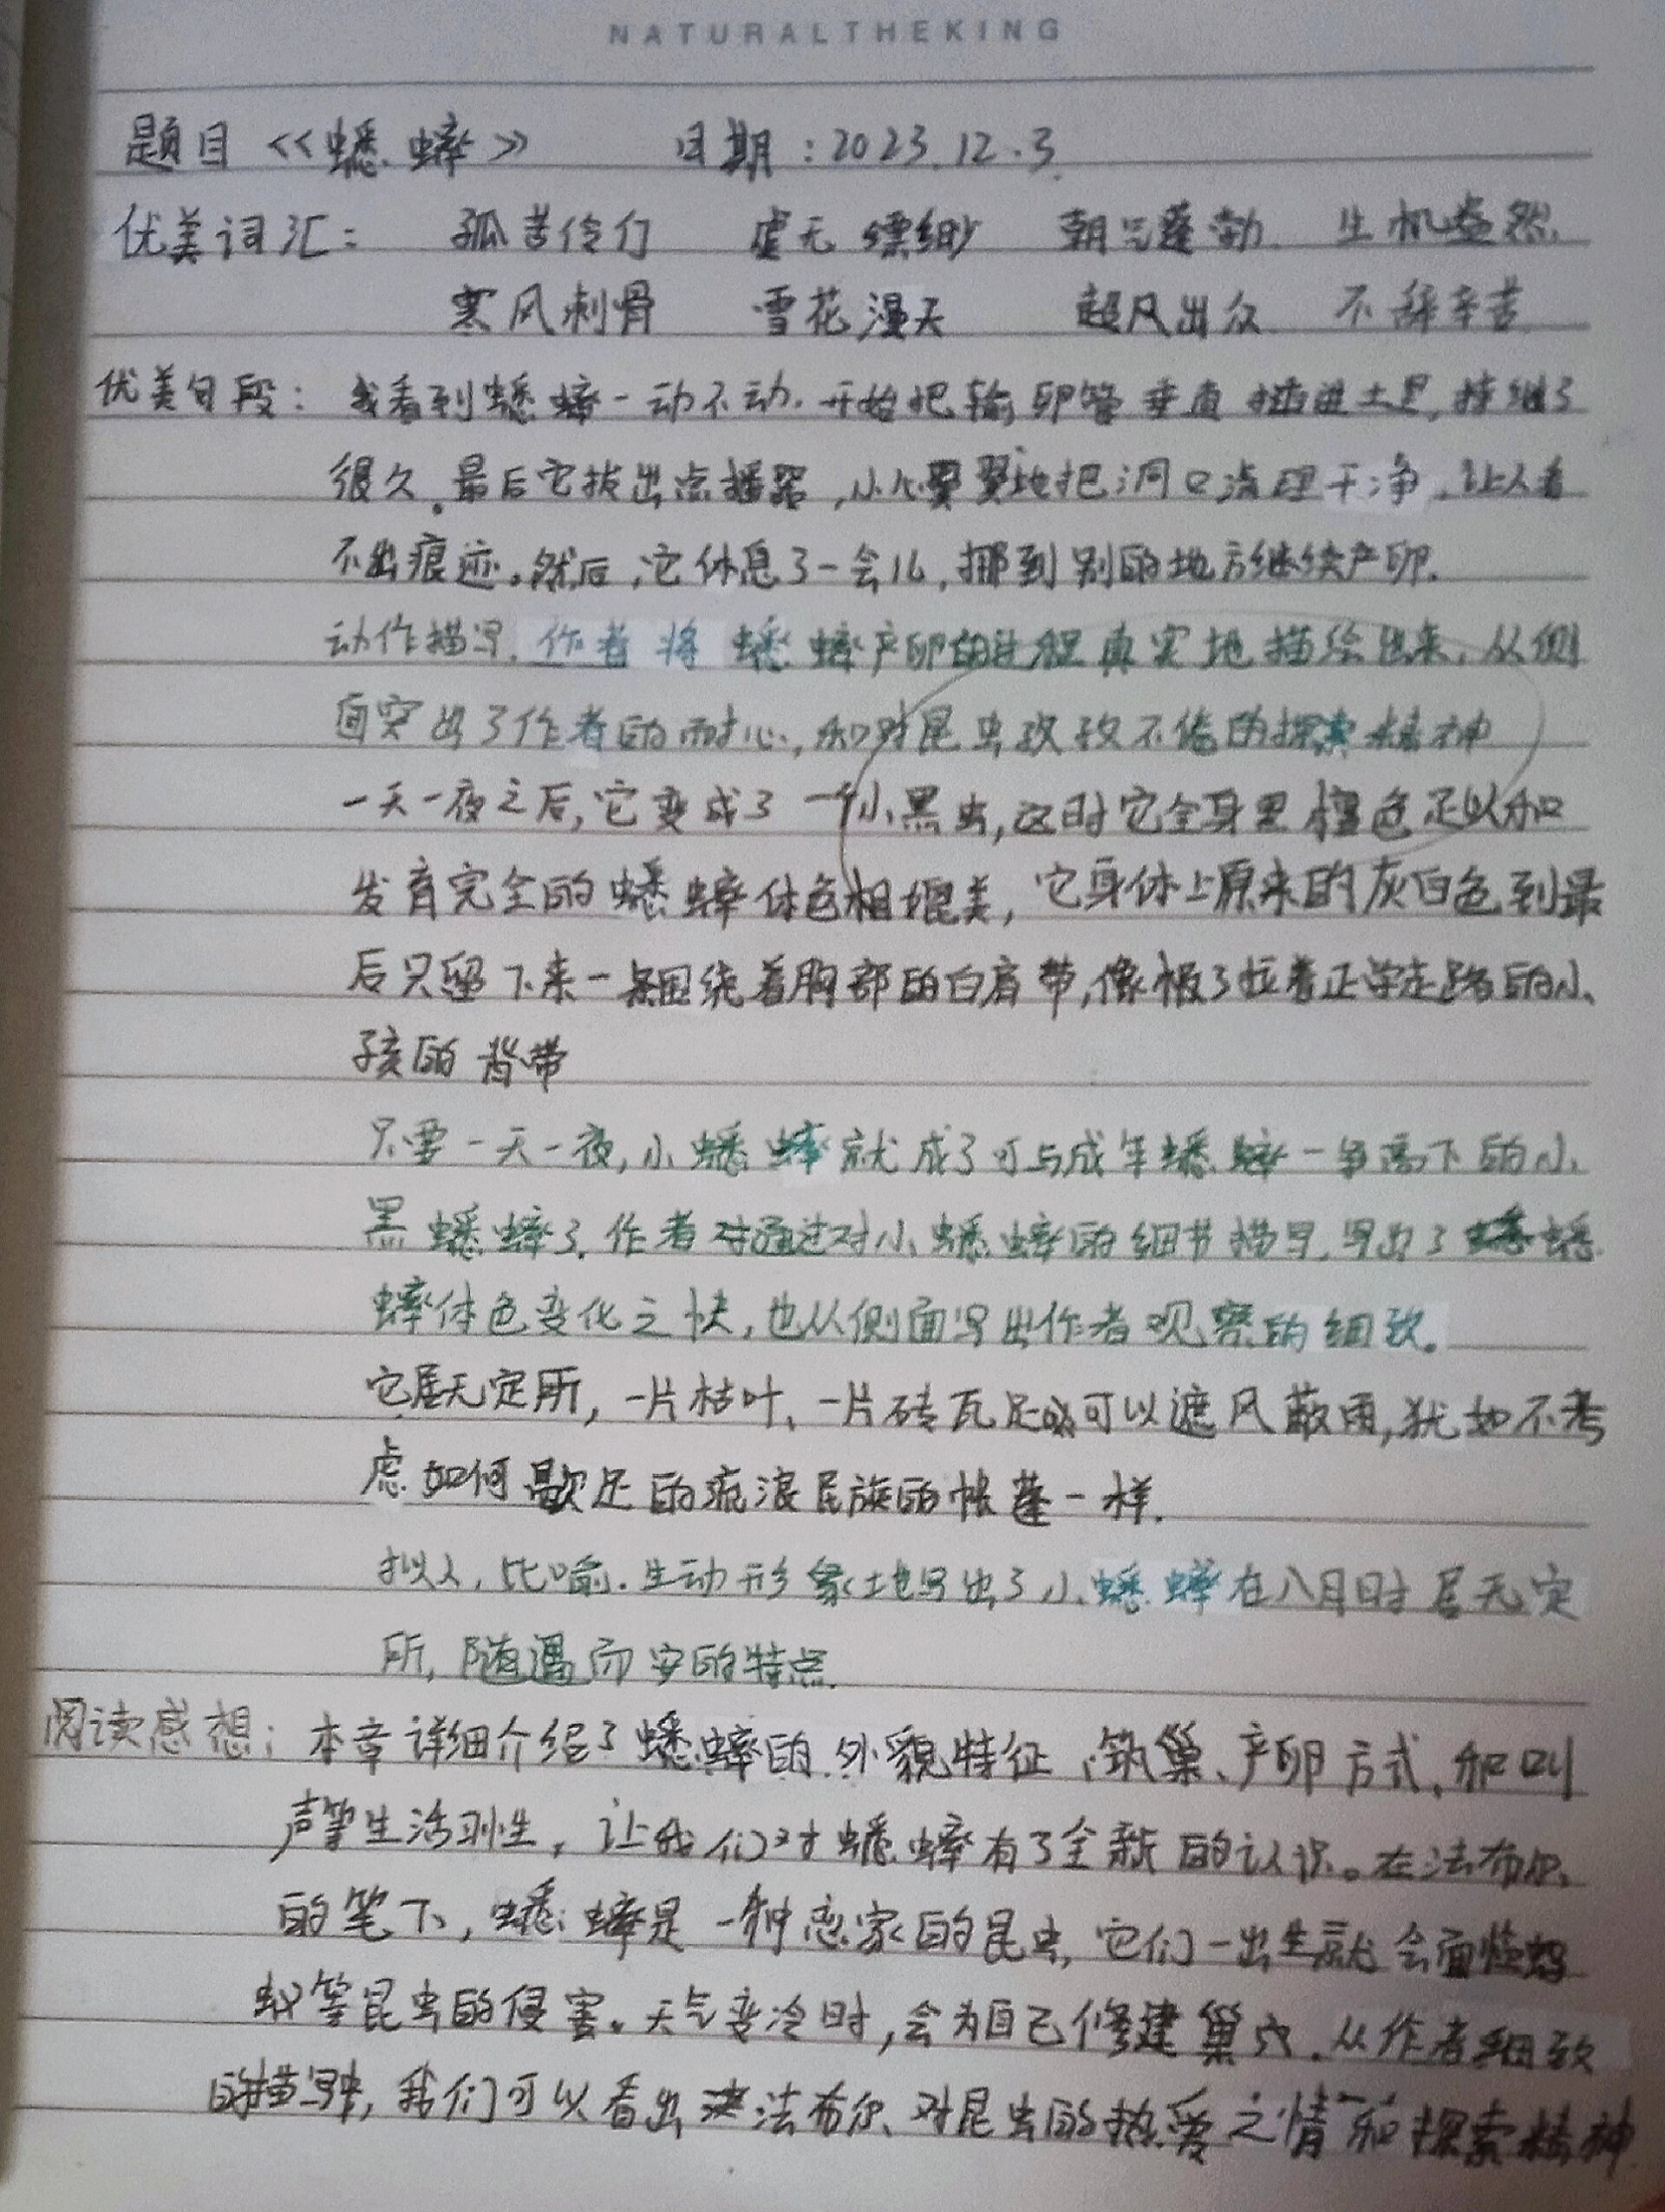 NATURALTHEKING
题目《蟋蟀》 日期:2023.12.3
优美词汇: 孤苦伶仃 虚无缥缈 朝气蓬勃 生机盎然
寒风刺骨 雪花漫天 超凡出众 不辞辛苦
优美句段: 我看到蟋蟀一动不动.开始把输卵管垂直插进土里,持继了
很久。最后它拔出点播器,小心翼翼地把洞口清理干净,让人看
不出痕迹。然后,它休息了一会儿,挪到别的地方继续产卵.
动作描写.作者将蟋蟀产卵的过程真实地描绘出来,从侧
面突出了作者的耐心,和对昆虫孜孜不倦的探索精神
一天一夜之后,它变成了一个小黑虫,这时它全身黑檀色足以和
发育完全的蟋蟀体色相媲美,它身体上原来的灰白色到最
后只留下来一条围绕着胸部的白肩带,像极了拉着正学走路的小
孩的背带
只要一天一夜,小蟋蟀就成了可与成年蟋蟀一争高下的小
黑蟋蟀了.作者对通过对小蟋蟀的细节描写,写出了蟋蟋
蟀体色变化之快,也从侧面写出作者观察的细致。
它居无定所,一片枯叶、一片砖瓦足可以遮风蔽雨,犹如不考
虑如何歇足的流浪民族的帐蓬一样.
拟人,比喻.生动形象地写出了小蟋蟀在八月时居无定
所,随遇而安的特点.
阅读感想:本章详细介绍了蟋蟀的外貌特征、筑巢、产卵方式,和叫
声等生活习性,让我们对蟋蟀有了全新的认识。在法布尔
的笔下,蟋蟀是一种恋家的昆虫,它们一出生就会面临蚂
蚁等昆虫的侵害。天气变冷时,会为自己修建巢穴.从作者细致
的描写中,我们可以看出法布尔对昆虫的热爱之情和探索精神.